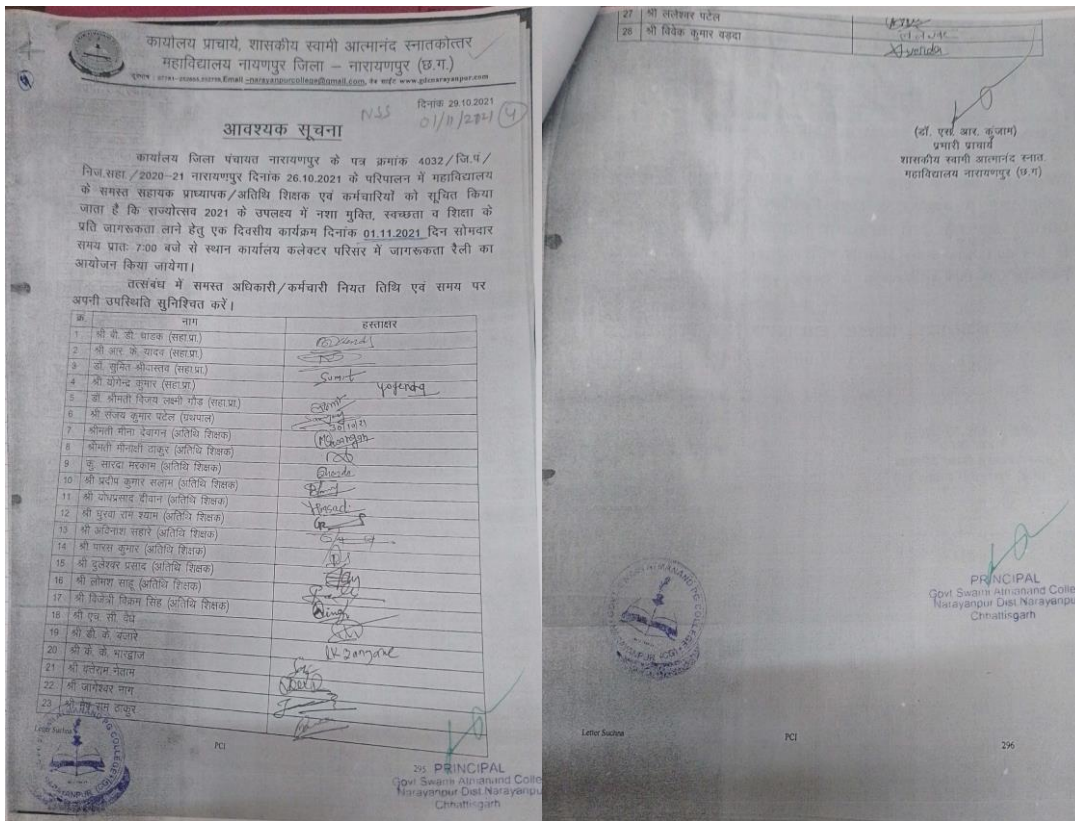 कार्यालय प्राचार्य, शासकीय स्वामी आत्मानंद स्नातकोत्तर
महाविद्यालय नायणपुर जिला – नारायणपुर (छ.ग.)
Email –narayanpurcollege@gmail.com, वेब साईट www.gdcnarayanpur.com
दिनांक 29.10.2021
NSS 01/11/2021 4
आवश्यक सूचना
कार्यालय जिला पंचायत नारायणपुर के पत्र क्रमांक 4032/जि.पं/
निज.सहा./2020-21 नारायणपुर दिनांक 26.10.2021 के परिपालन में महाविद्यालय
के समस्त सहायक प्राध्यापक/अतिथि शिक्षक एवं कर्मचारियों को सूचित किया
जाता है कि राज्योत्सव 2021 के उपलक्ष्य में नशा मुक्ति, स्वच्छता व शिक्षा के
प्रति जागरूकता लाने हेतु एक दिवसीय कार्यक्रम दिनांक 01.11.2021 दिन सोमवार
समय प्रातः 7:00 बजे से स्थान कार्यालय कलेक्टर परिसर में जागरूकता रैली का
आयोजन किया जायेगा।
तत्संबंध में समस्त अधिकारी/कर्मचारी नियत तिथि एवं समय पर
अपनी उपस्थिति सुनिश्चित करें।
क्र. नाम हस्ताक्षर
1 श्री बी. डी. चाडक (सहा.प्रा.)
2 श्री आर. के. यादव (सहा.प्रा.)
3 डॉ. सुमित श्रीवास्तव (सहा.प्रा.) Sumit
4 श्री योगेन्द्र कुमार (सहा.प्रा.) Yogendra
5 डॉ. श्रीमती विजय लक्ष्मी गौड़ (सहा.प्रा.)
6 श्री संजय कुमार पटेल (ग्रंथपाल) 30/10/21
7 श्रीमती मीना देवांगन (अतिथि शिक्षक)
8 श्रीमती मीनाक्षी ठाकुर (अतिथि शिक्षक)
9 कु. सारदा मरकाम (अतिथि शिक्षक)
10 श्री प्रदीप कुमार सलाम (अतिथि शिक्षक)
11 श्री बोधप्रसाद दीवान (अतिथि शिक्षक)
12 श्री घुरवा राम श्याम (अतिथि शिक्षक)
13 श्री अविनाश सहारे (अतिथि शिक्षक)
14 श्री पारस कुमार (अतिथि शिक्षक)
15 श्री दुलेश्वर प्रसाद (अतिथि शिक्षक)
16 श्री लोमश साहू (अतिथि शिक्षक)
17 श्री विजेन्द्र विक्रम सिंह (अतिथि शिक्षक) Singh
18 श्री एच. सी. देव
19 श्री डी. के. बंजारे
20 श्री के. के. भारद्वाज
21 श्री नेताम
22 श्री जागेश्वर नाग
23 श्री राम ठाकुर
Letter Suchna PCI 295
PRINCIPAL
Govt Swami Atmanand Colle
Narayanpur Dist.Narayanpu
Chhattisgarh
27 श्री ललेश्वर पटेल
28 श्री विवेक कुमार वड़दा
(डॉ. एस. आर. कुंजाम)
प्रभारी प्राचार्य
शासकीय स्वामी आत्मानंद स्नात.
महाविद्यालय नारायणपुर (छ.ग)
PRINCIPAL
Govt Swami Atmanand Colle
Narayanpur Dist.Narayanpu
Chhattisgarh
Letter Suchna PCI 296